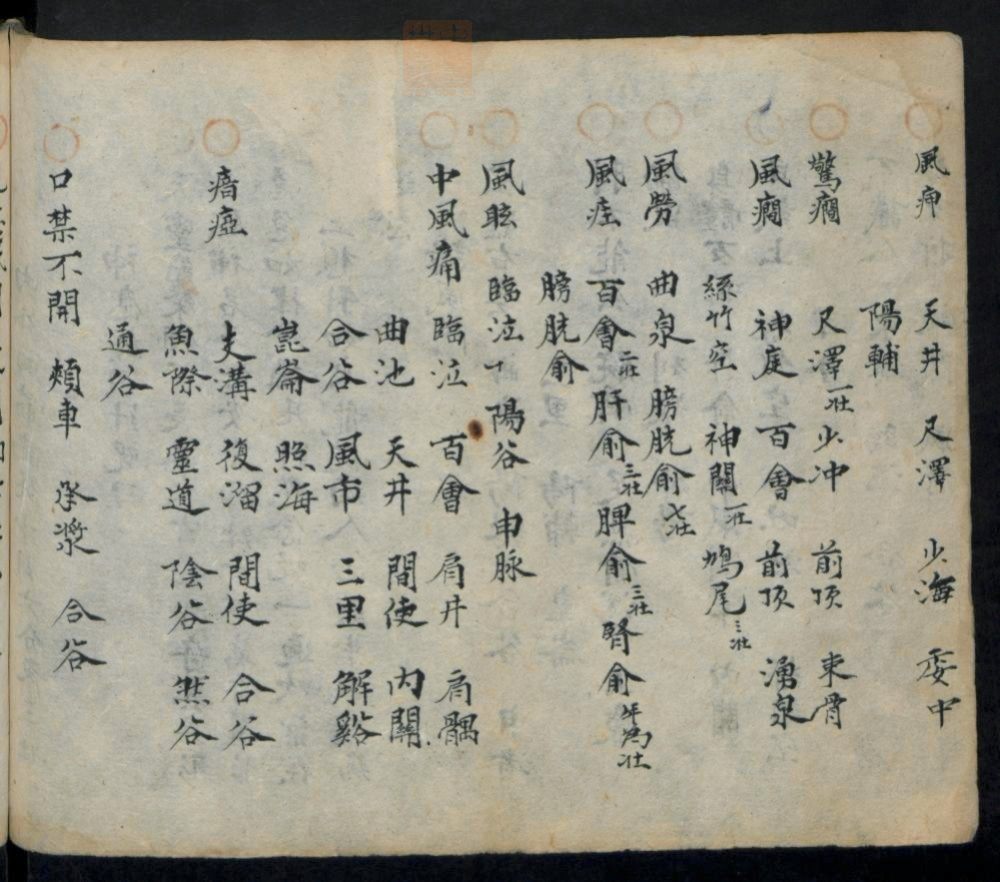 風痺 天井 尺澤 少海 委中
陽輔
驚癇 尺澤一壯 少冲 前頂 束骨
風癇 神庭 百會 前頂 湧泉
絲竹空 神闕一壯 鳩尾三壯
風勞 曲泉 膀胱俞七壯
風疰 百會二壯 肝俞三壯 脾俞三壯 腎俞年為壯
膀胱俞
風眩 臨泣 陽谷 申脉
中風痛 臨泣 百會 肩井 肩髃
曲池 天井 間使 內關
合谷 風市 三里 解谿
崑崙 照海
瘖瘂 支溝 復溜 間使 合谷
魚際 靈道 陰谷 然谷
通谷
口禁不開 頰車 承漿 合谷